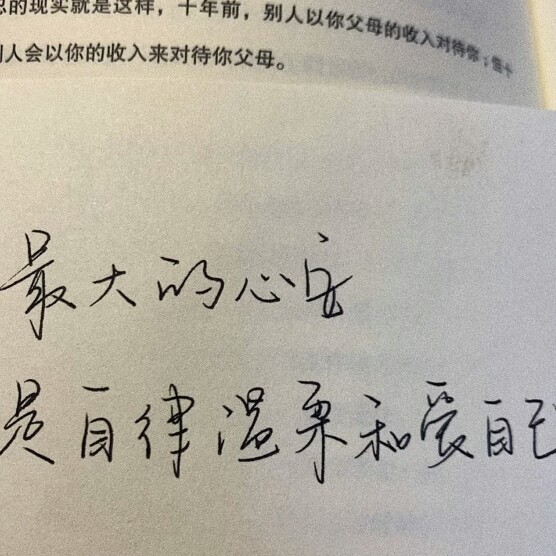 的现实就是这样，十年前，别人以你父母的收入对待你；
人会以你的收入来对待你父母。
最大的心安
是自律温柔和爱自己